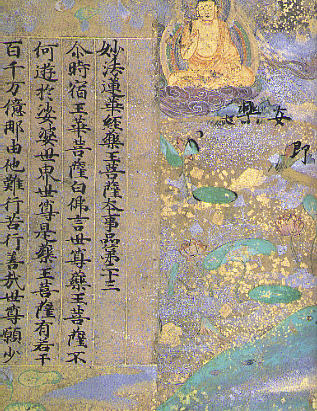 安樂
即
妙法蓮華經藥王菩薩本事品第二十三
尒時宿王華菩薩白佛言世尊藥王菩薩云
何遊於娑婆世界世尊是藥王菩薩有若干
百千万億那由他難行苦行善哉世尊願少